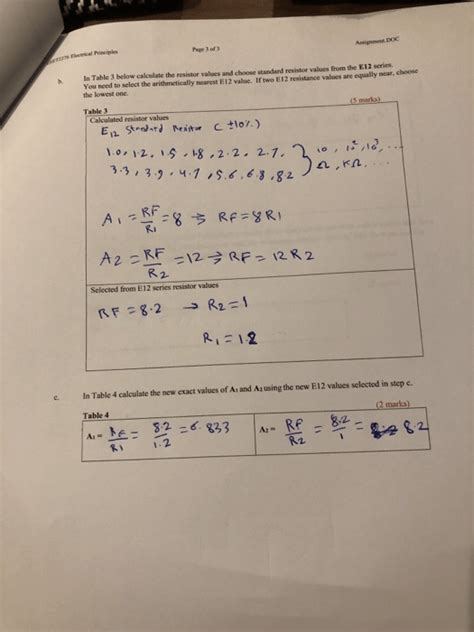 Electrical Principles
Page 3 of 3
Assignment.DOC
b. In Table 3 below calculate the resistor values and choose standard resistor values from the E12 series.
You need to select the arithmetically nearest E12 value. If two E12 resistance values are equally near, choose
the lowest one.
(5 marks)
Table 3
Calculated resistor values
E12 Standard Resistor (±10%)
1.0, 1.2, 1.5, 1.8, 2.2, 2.7, } 10, 10², 10³, ...
3.3, 3.9, 4.7, 5.6, 6.8, 8.2 Ω, KΩ, ...
A1 = RF/R1 = 8 ⇒ RF = 8R1
A2 = RF/R2 = 12 ⇒ RF = 12R2
Selected from E12 series resistor values
RF = 8.2 → R2 = 1
R1 = 1.2
c. In Table 4 calculate the new exact values of A1 and A2 using the new E12 values selected in step c.
(2 marks)
Table 4
A1 = RF/R1 = 8.2/1.2 = 6.833 A2 = RF/R2 = 8.2/1 = 8.2